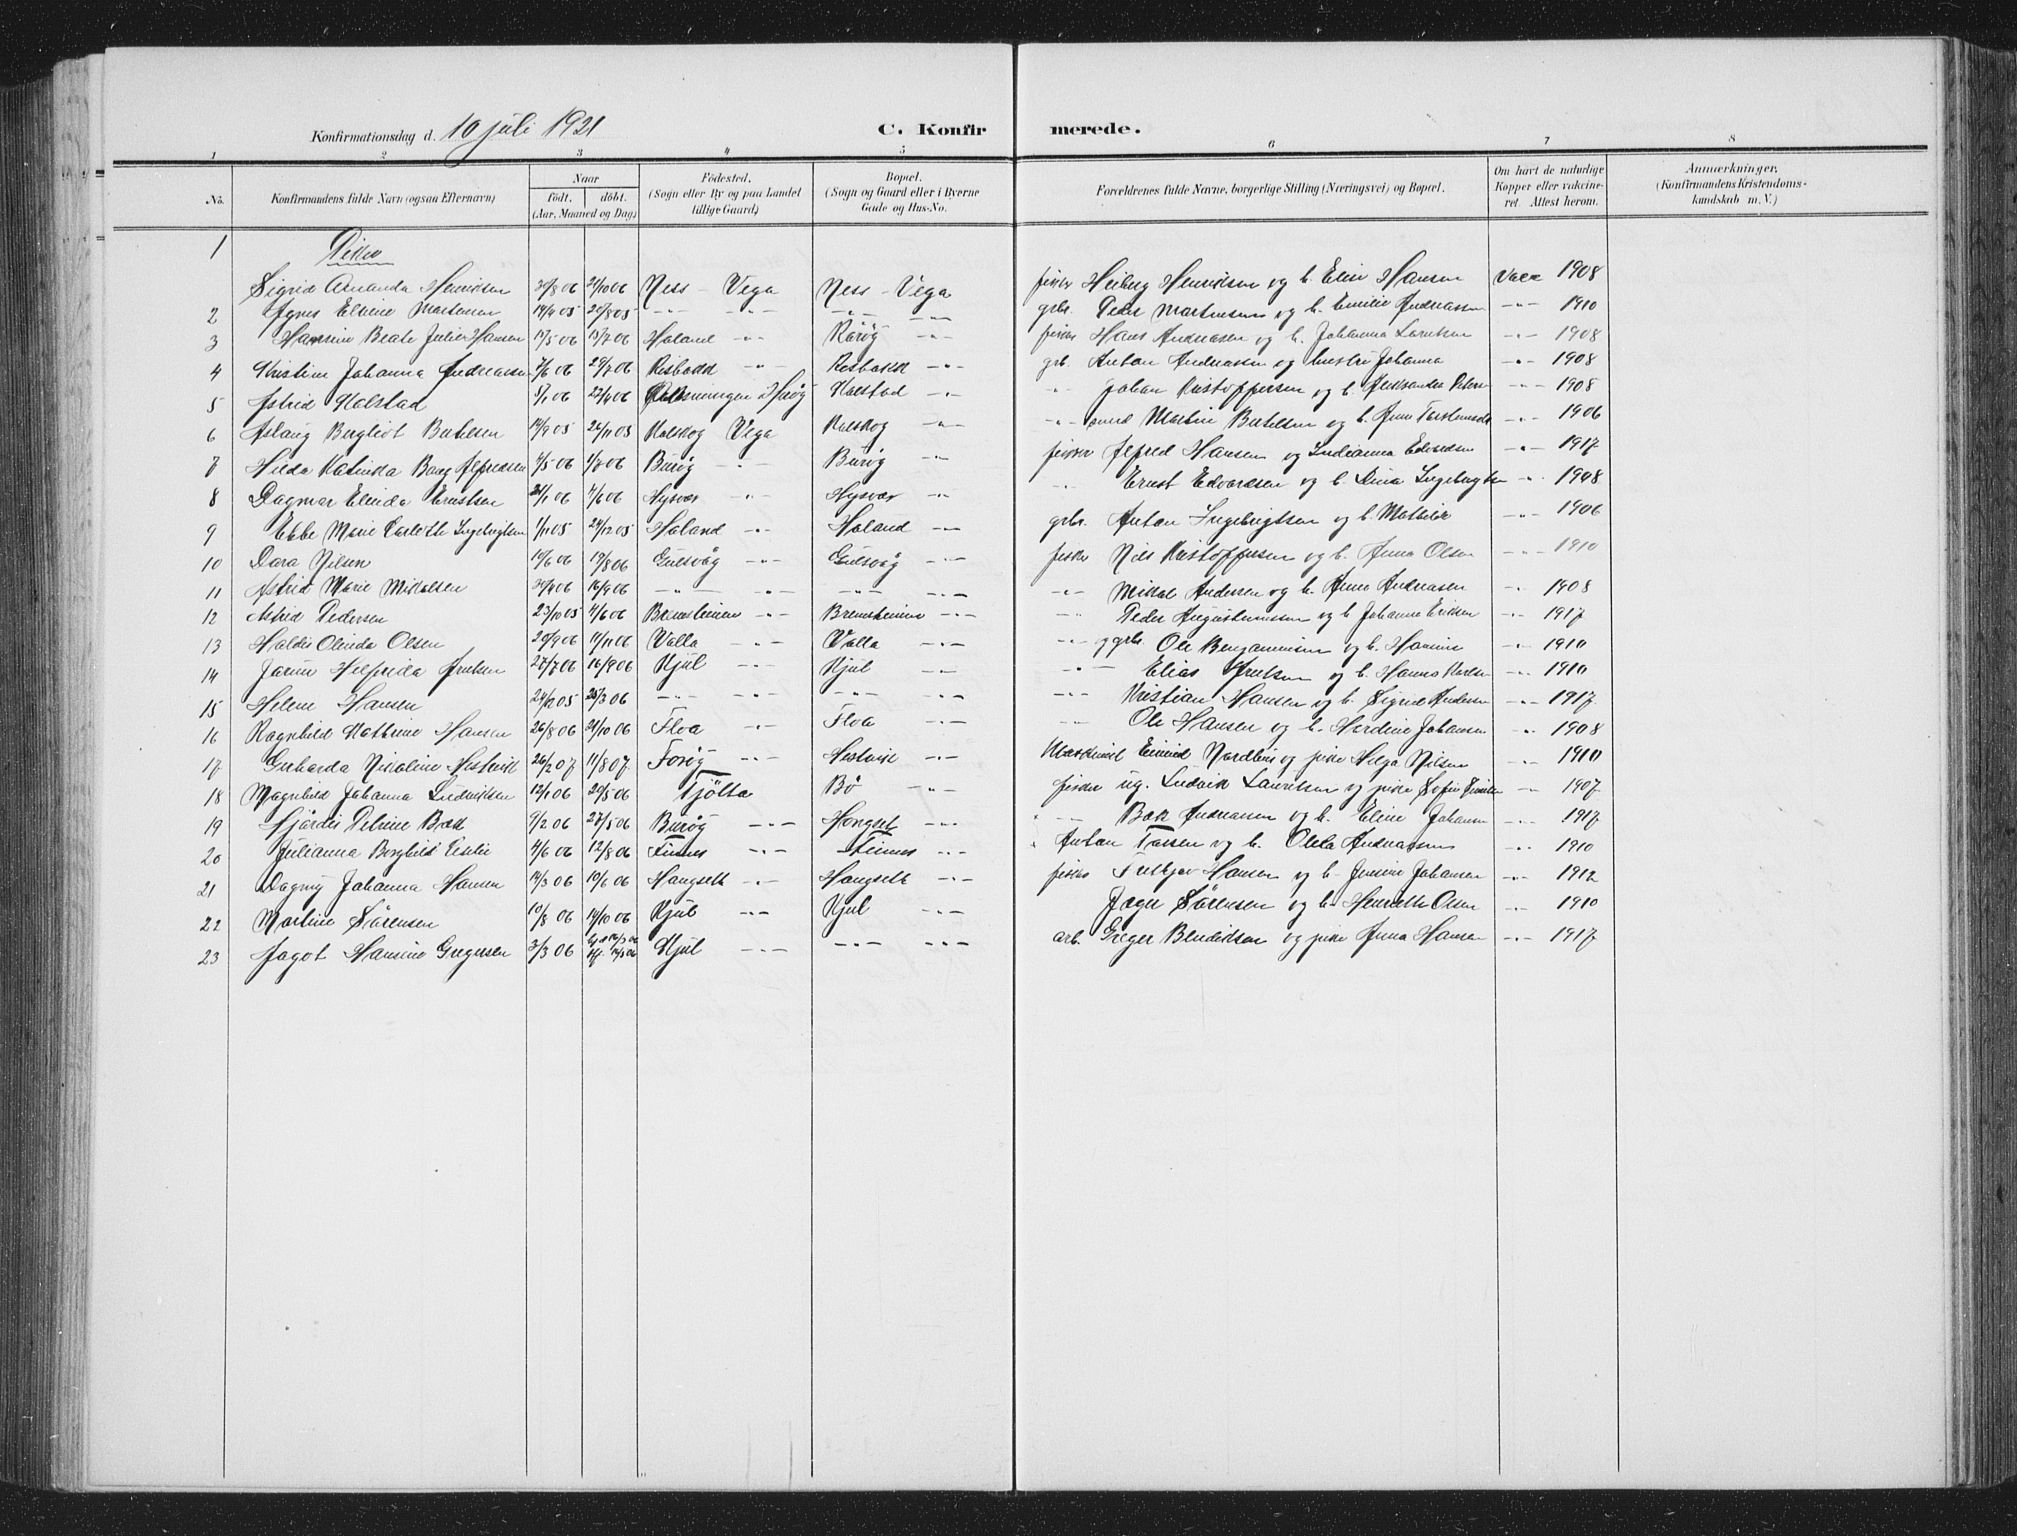 Konfirmationsdag d. 10 juli 1921 C. Konfir merede.
1 2 3 4 5 6 7 8
No. Konfirmandens fulde Navn (ogsaa Efternavn) Naar født. døbt. (Aar, Maaned og Dag) Fødested. (Sogn eller By og paa Landet tillige Gaard) Bopæl. (Sogn og Gaard eller i Byerne Gade og Hus-No. Forældrenes fulde Navne, borgerlige Stilling (Næringsvei) og Bopæl. Om havt de naturlige Kopper eller vaccineret. Attest herom. Anmærkninger. (Konfirmandens Kristendomskundskab m. V.)
Piker
1 Sigrid Amanda Henriksen 30/8 06 21/10 06 Ness - Vega Ness - Vega fisker Heiberg Henriksen og h. Elise Hansen Vacc 1908
2 Agnes Elvine Martensen 19/4 05 20/8 05 -"- -"- -"- -"- gbr. Peder Martensen og h. Emilie Andreassen -"- 1910
3 Hansine Beate Julie Hansen 17/5 06 15/7 06 Holand -"- Rørøy -"- fisker Hans Andreassen og h. Johanna Larsen -"- 1908
4 Kristine Johanna Andreassen 7/6 06 29/7 06 Risbakk -"- Risbakk -"- gb. Anton Andreassen og hustru Johanna -"- 1908
5 Astrid Kolstad 8/1 06 22/4 06 Herøy Kolstad -"- -"- Johan Kristoffersen og h. Aleksandra -"- 1908
6 Aslaug Bergliot Bertelsen 14/9 05 26/11 05 Kalskog Vega Kalskog -"- -"- smed Martin Bertelsen og h. Anna -"- 1906
7 Hilda Katinka Borg Alfredsen 4/5 06 1/7 06 Burøy -"- Burøy -"- fisker Alfred Hansen og Indianna Edvardsen -"- 1917
8 Dagmar Elinda Ernstsen 21/1 06 4/6 06 Hysvær -"- Hysvær -"- -"- Ernst Edvardsen og h. Dina Ingebrigtsen -"- 1908
9 Ebbe Marie Carlotte Ingebrigtsen 1/11 05 24/12 05 Holand -"- Holand -"- gbr. Anton Ingebrigtsen og h. Mathilde -"- 1906
10 Dora Nilsen 10/6 06 19/8 06 Gulsvåg -"- Gulsvåg -"- fisker Nils Kristoffersen og h. Anna Olsen -"- 1910
11 Astrid Marie Mikalsen 30/4 06 16/9 06 -"- -"- -"- -"- -"- Mikal Andersen og h. Anna Andreasen -"- 1908
12 Astrid Pedersen 23/10 05 4/6 06 Bremsteinen -"- Bremsteinen -"- -"- Peder Augustinussen og h. Johanna Eriksen -"- 1917
13 Haldis Olinda Olsen 29/9 06 11/11 06 Valla -"- Valla -"- -"- og gbr. Ole Benjaminsen og h. Hansine -"- 1910
14 Helfrida Arntsen 27/7 06 16/9 06 Kjul -"- Kjul -"- -"- Elias Arntsen og h. Hanna Karlsen -"- 1910
15 Helene Hansen 24/12 05 25/3 06 -"- -"- -"- -"- -"- Kristian Hansen og h. Sigrid Andersen -"- 1917
16 Ragnhild Kathrine Hansen 26/8 06 21/10 06 Floa -"- Floa -"- -"- Ole Hansen og h. Hardine Johansen -"- 1908
17 Gerharda Nikoline Hestvik 26/2 07 11/8 07 Forøy -"- Hestvik -"- Eivind Nordbus og pike Helga Nilsen -"- 1910
18 Magnhild Johanna Ludviksen 12/1 06 20/5 06 Tjøtta Bø -"- fisker ug. Ludvik Lauritsen og pike Sofie -"- 1907
19 Hjørdis Petrine Bæk 9/2 06 27/5 06 Burøy -"- Hongset -"- -"- Bæk Andreassen og h. Eline Johansen -"- 1917
20 Julianna Borghild 4/6 06 12/8 06 Finnes -"- Finnes -"- " Anton Tossen og h. Olella Andreassen -"- 1910
21 Dagny Johanna Hansen 14/3 06 10/6 06 Hongseth -"- Hongseth -"- fisker Hansen og h. Jensine Johansen -"- 1912
22 Martine Sørensen 10/8 06 14/10 06 Kjul -"- Kjul -"- Jæger Sørensen og h. Henrette Olsen -"- 1910
23 Jagot Hansine Gregersen 3/3 06 Kjul -"- -"- -"- arb. Greger Bendiksen og pike Anna Hansen -"- 1917